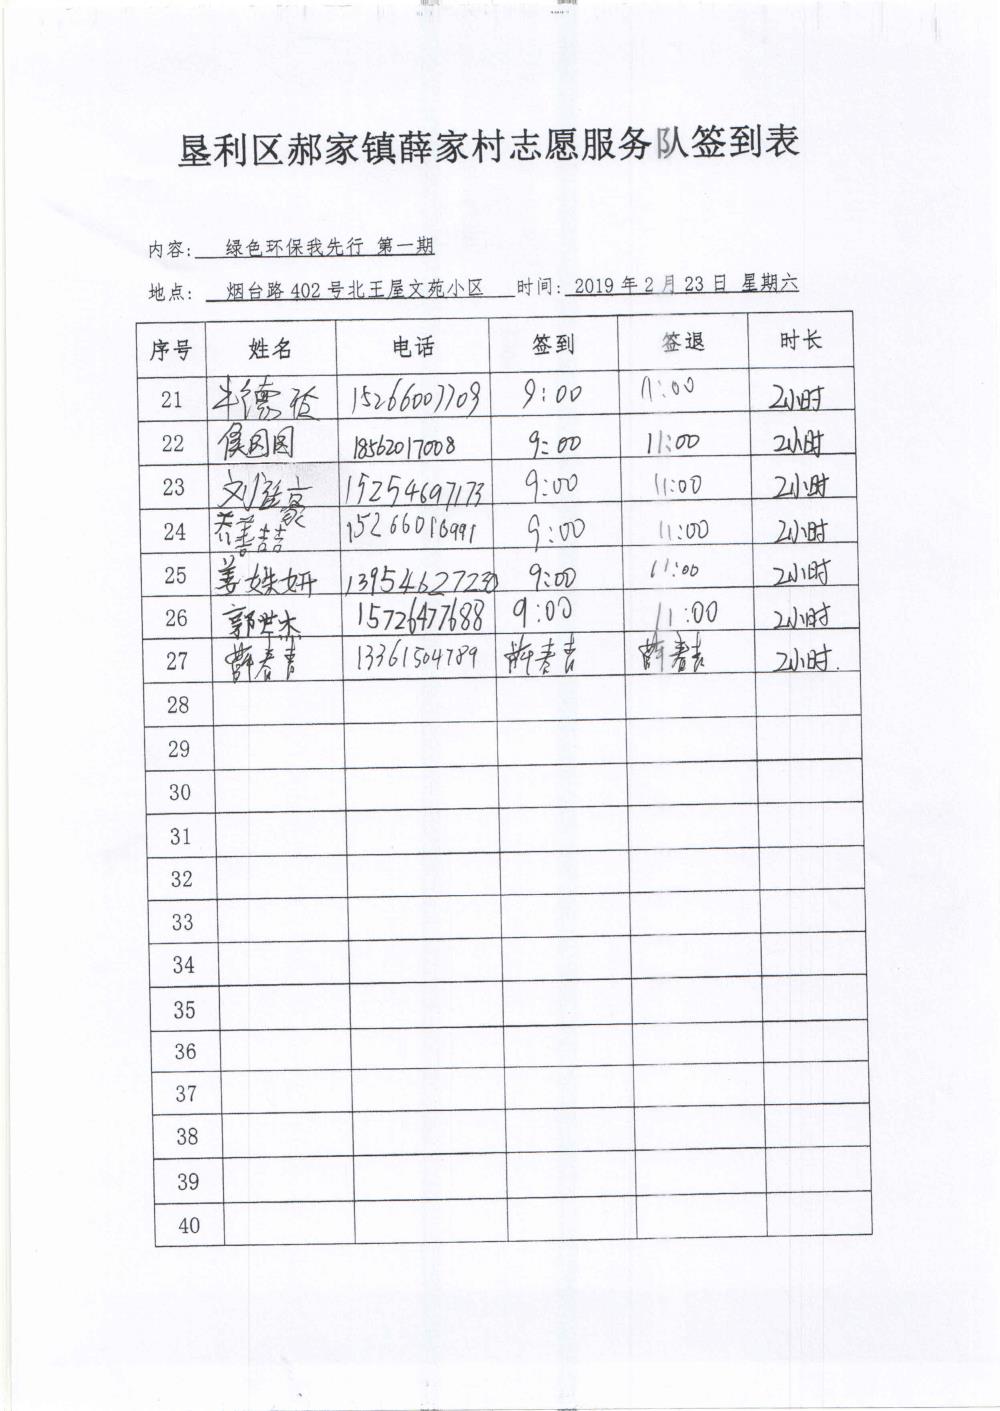 垦利区郝家镇薛家村志愿服务队签到表
内容: 绿色环保我先行 第一期
地点: 烟台路402号北王屋文苑小区 时间: 2019年2月23日 星期六
序号 姓名 电话 签到 签退 时长
21 德 15266007709 9:00 11:00 2小时
22 侯图图 18562017008 9:00 11:00 2小时
23 刘 豪 15254697173 9:00 11:00 2小时
24 喆 15266016991 9:00 11:00 2小时
25 姜姝妍 13954627230 9:00 11:00 2小时
26 郭世杰 15726477688 9:00 11:00 2小时
27 薛春吉 13361504789 薛春吉 薛春吉 2小时.
28
29
30
31
32
33
34
35
36
37
38
39
40